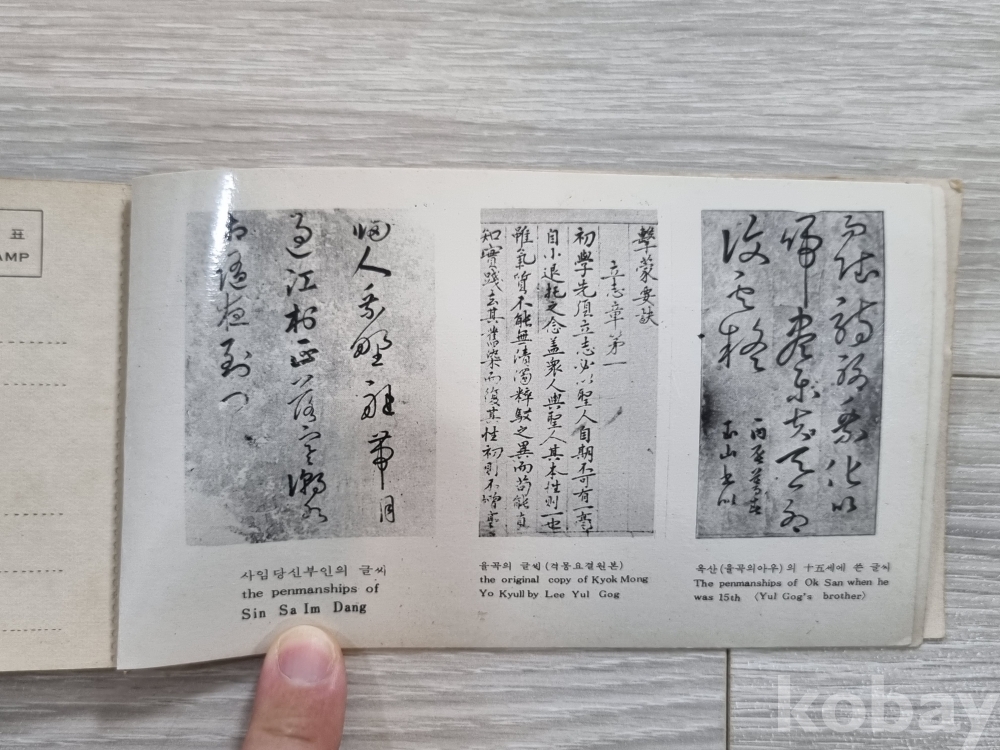 표
AMP
歸人乘野艇帶月
過江村正落寒潮水
相隨夜到門
擊蒙要訣
立志章第一
初學先須立志必以聖人自期不可有一毫
自小退托之念盖衆人與聖人其本性則一也
雖氣質不能無淸濁粹駁之異而苟能眞
知實踐去其舊染而復其性初則不增毫
사임당신부인의 글씨
the penmanships of
Sin Sa Im Dang
율곡의 글씨 (격몽요결원본)
the original copy of Kyok Mong
Yo Kyull by Lee Yul Gog
옥산(율곡의아우)의 十五세에 쓴 글씨
The penmanships of Ok San when he
was 15th 〈Yul Gog's brother〉
kobay